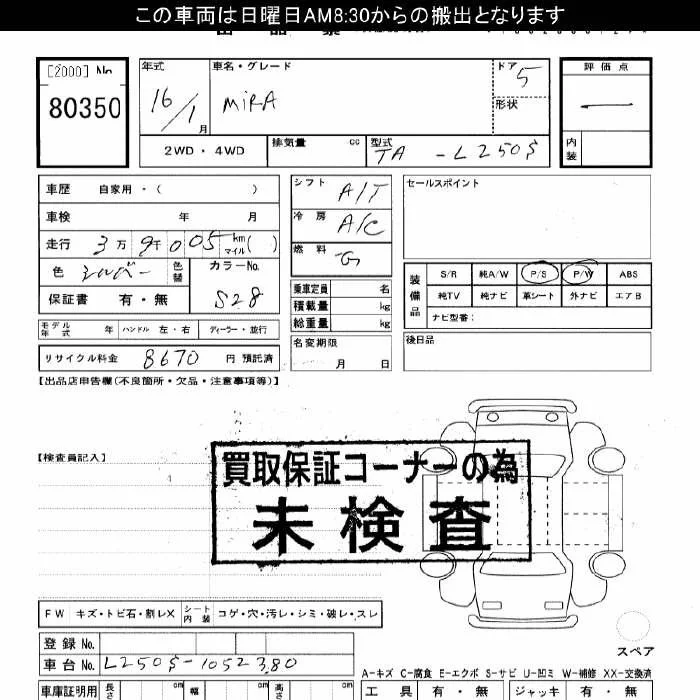 この車両は日曜日AM8:30からの搬出となります
[2000] No
80350
年式 16/1 月
車名・グレード MiRA
ドア 5
形状
評価点 —
内装
2WD・4WD
排気量 cc
型式 TA-L250S
車歴 自家用・( )
車検 年 月
走行 3万9千005 km マイル( )
色 シルバー 色替 カラーNo. S28
保証書 有・無
モデル年式 年 ハンドル 左・右 ディーラー・並行
リサイクル料金 8670 円 預託済
シフト A/T
冷房 A/C
燃料 G
乗車定員 名
積載量 kg
総重量 kg
名変期限 月 日
セールスポイント
装備品
S/R 純A/W P/S P/W ABS
純TV 純ナビ 革シート 外ナビ エアB
ナビ型番:
後日品
【出品店申告欄(不良箇所・欠品・注意事項等)】
【検査員記入】
買取保証コーナーの為
未検査
FW キズ・トビ石・割レX シート内装 コゲ・穴・汚レ・シミ・破レ・スレ
スペア
登録No.
車台No. L250S-1052380
A-キズ C-腐食 E-エクボ S-サビ U-凹ミ W-補修 XX-交換済
車庫証明用 長さ cm 幅 cm 高さ cm
工具 有・無 ジャッキ 有・無